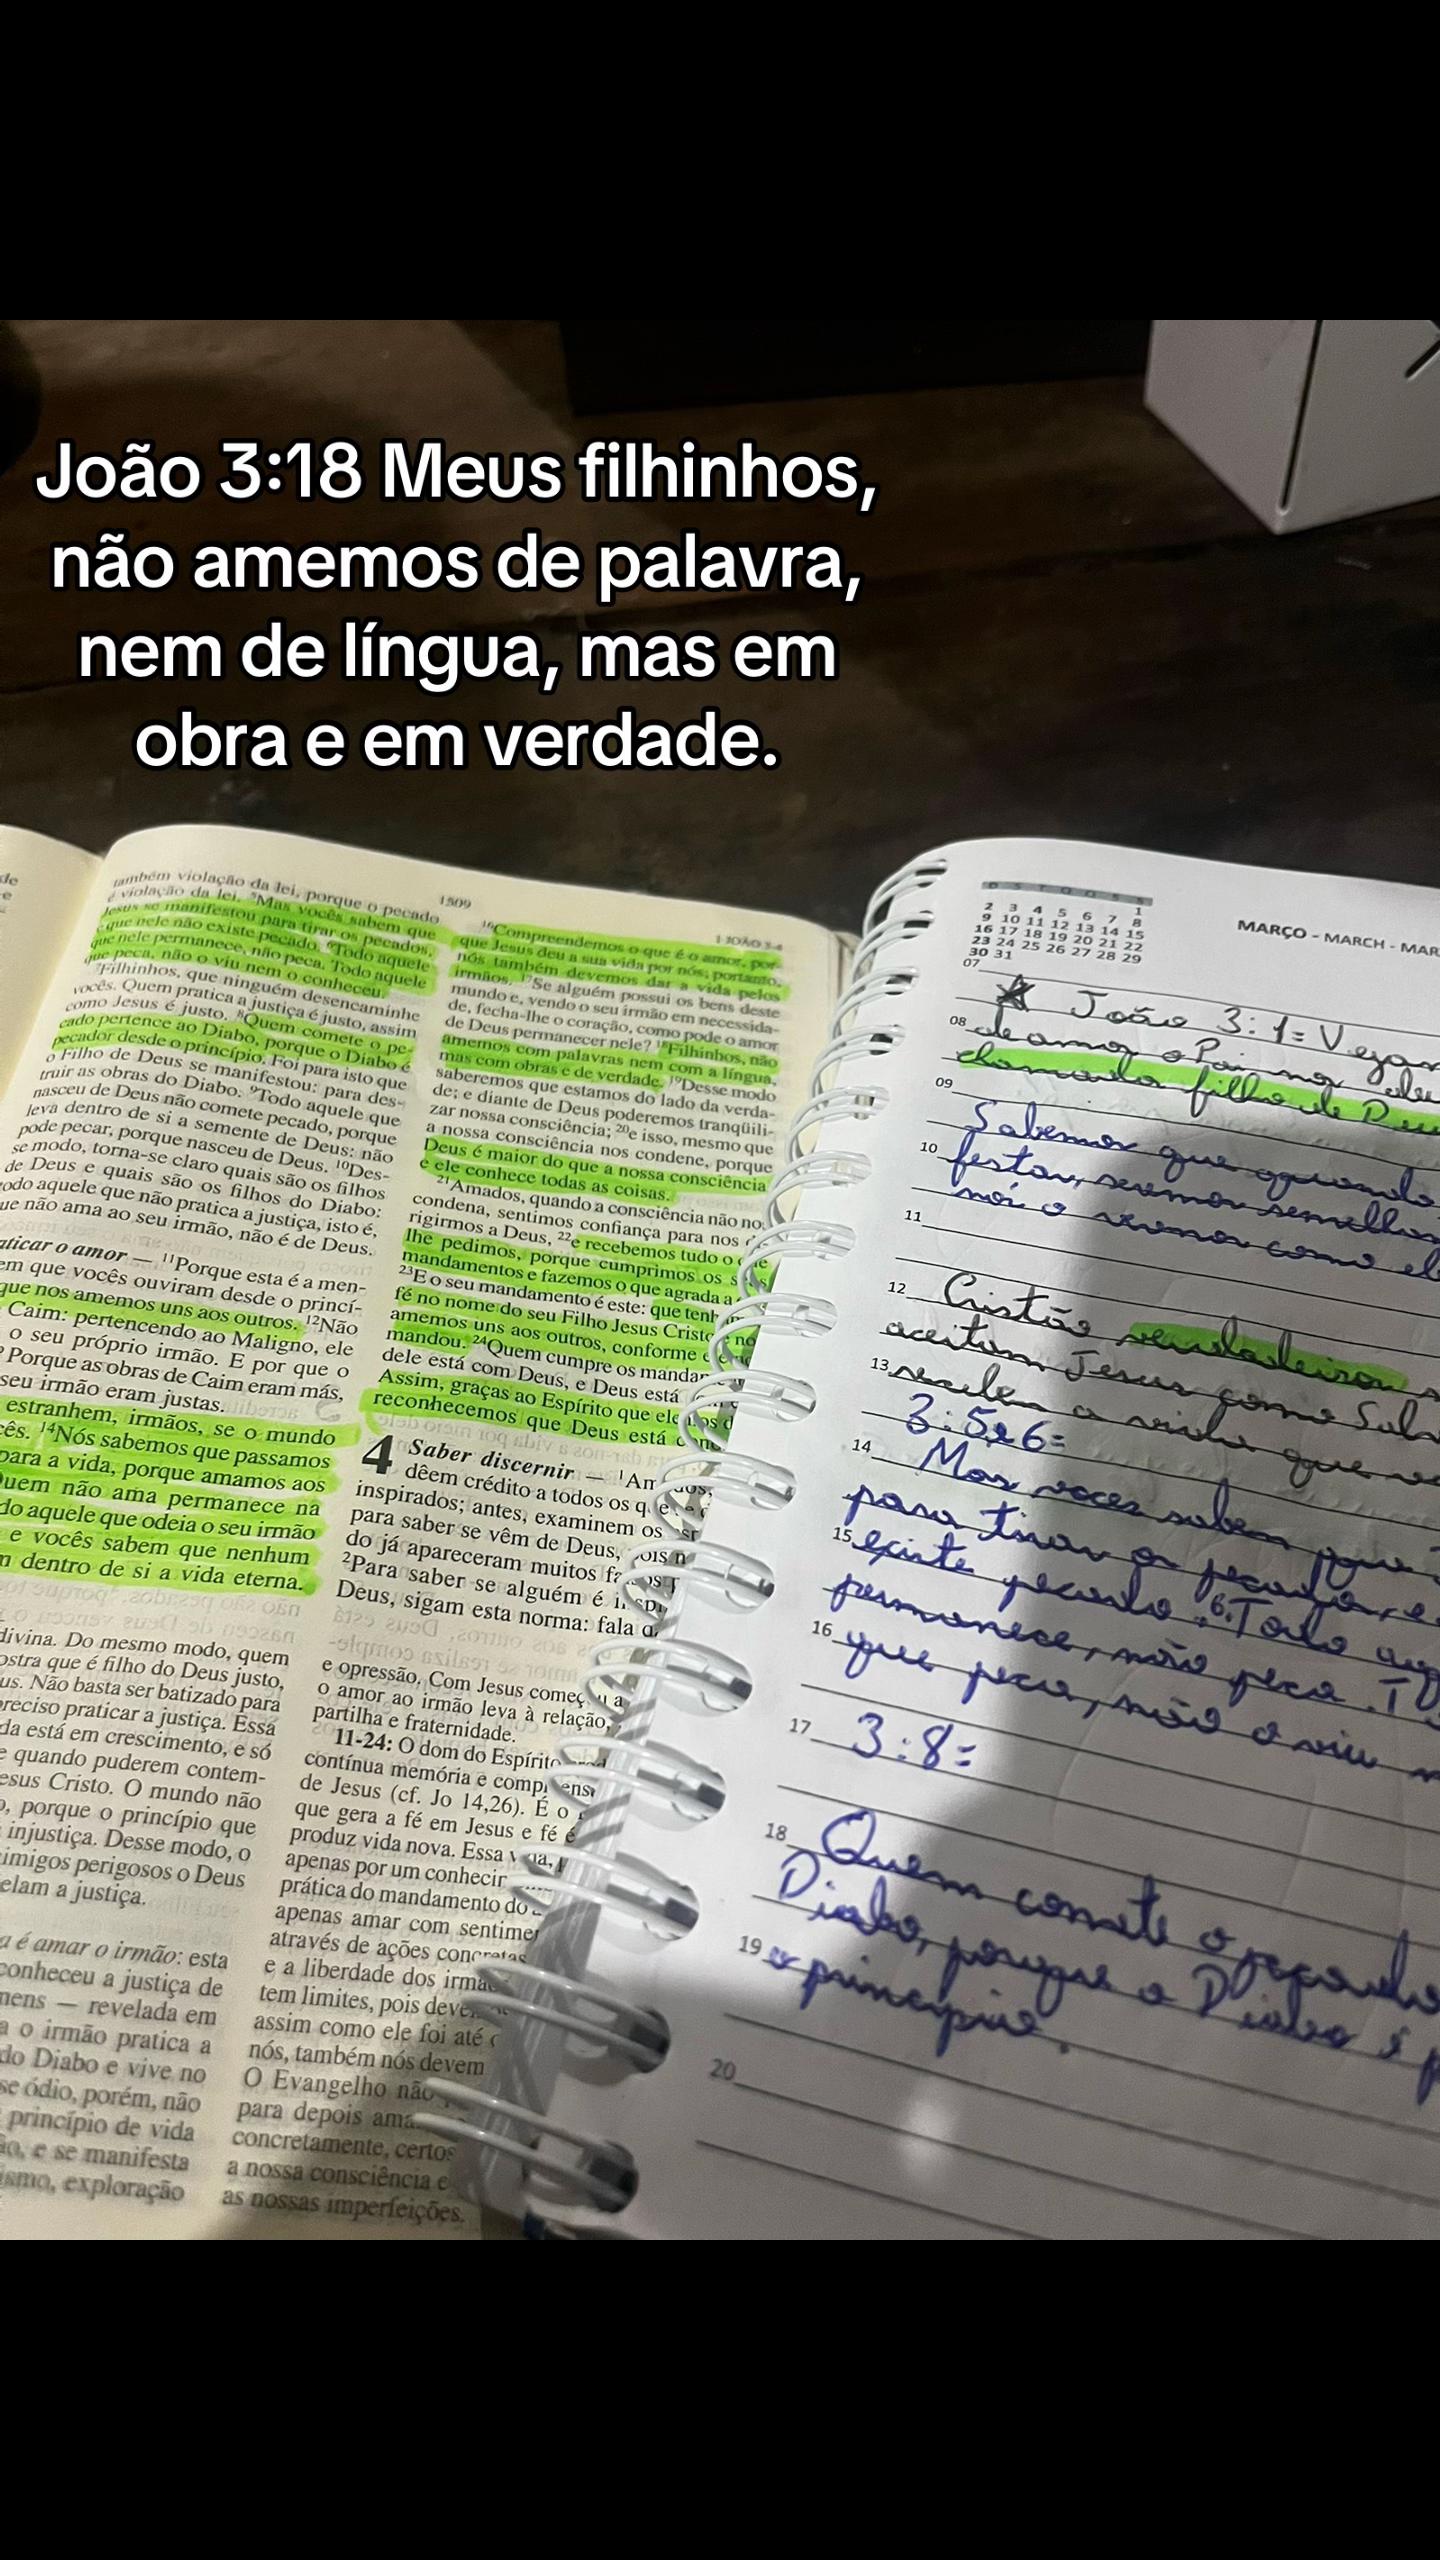 João 3:18 Meus filhinhos,
não amemos de palavra,
nem de língua, mas em
obra e em verdade.
1509
também violação da lei, porque o pecado
é violação da lei. ⁵Mas vocês sabem que
Jesus se manifestou para tirar os pecados,
e que nele não existe pecado. ⁶Todo aquele
que nele permanece, não peca. Todo aquele
que peca, não o viu nem o conheceu.
⁷Filhinhos, que ninguém desencaminhe
vocês. Quem pratica a justiça é justo, assim
como Jesus é justo. ⁸Quem comete o pe-
cado pertence ao Diabo, porque o Diabo é
pecador desde o princípio. Foi para isto que
o Filho de Deus se manifestou: para des-
truir as obras do Diabo. ⁹Todo aquele que
nasceu de Deus não comete pecado, porque
leva dentro de si a semente de Deus: não
pode pecar, porque nasceu de Deus. ¹⁰Des-
se modo, torna-se claro quais são os filhos
de Deus e quais são os filhos do Diabo:
todo aquele que não pratica a justiça, isto é,
que não ama ao seu irmão, não é de Deus.
o amor — ¹¹Porque esta é a men-
em que vocês ouviram desde o princí-
que nos amemos uns aos outros. ¹²Não
Caim: pertencendo ao Maligno, ele
o seu próprio irmão. E por que o
? Porque as obras de Caim eram más,
seu irmão eram justas.
estranhem, irmãos, se o mundo
¹⁴Nós sabemos que passamos
para a vida, porque amamos aos
Quem não ama permanece na
aquele que odeia o seu irmão
e vocês sabem que nenhum
dentro de si a vida eterna.
divina. Do mesmo modo, quem
que é filho do Deus justo,
Não basta ser batizado para
preciso praticar a justiça. Essa
está em crescimento, e só
quando puderem contem-
Cristo. O mundo não
porque o princípio que
injustiça. Desse modo, o
inimigos perigosos o Deus
a justiça.
é amar o irmão: esta
conheceu a justiça de
— revelada em
o irmão pratica a
do Diabo e vive no
ódio, porém, não
princípio de vida
e se manifesta
exploração
1 JOÃO 3-4
¹⁶Compreendemos o que é o amor, por-
que Jesus deu a sua vida por nós; portanto,
nós também devemos dar a vida pelos
irmãos. ¹⁷Se alguém possui os bens deste
mundo e, vendo o seu irmão em necessida-
de, fecha-lhe o coração, como pode o amor
de Deus permanecer nele? ¹⁸Filhinhos, não
amemos com palavras nem com a língua,
mas com obras e de verdade. ¹⁹Desse modo
saberemos que estamos do lado da verda-
de; e diante de Deus poderemos tranqüili-
zar nossa consciência; ²⁰e isso, mesmo que
a nossa consciência nos condene, porque
Deus é maior do que a nossa consciência
e ele conhece todas as coisas.
²¹Amados, quando a consciência não nos
condena, sentimos confiança para nos
rigirmos a Deus, ²²e recebemos tudo o que
lhe pedimos, porque cumprimos os seus
mandamentos e fazemos o que agrada a
²³E o seu mandamento é este: que tenh
fé no nome do seu Filho Jesus Cristo e no
amemos uns aos outros, conforme
mandou. ²⁴Quem cumpre os manda
dele está com Deus, e Deus está
Assim, graças ao Espírito que ele
reconhecemos que Deus está
4 Saber discernir —
dêem crédito a todos os que
inspirados; antes, examinem os
para saber se vêm de Deus, pois
do já apareceram muitos
²Para saber se alguém é
Deus, sigam esta norma: fala
e opressão. Com Jesus
o amor ao irmão leva à relação,
partilha e fraternidade.
11-24: O dom do Espírito
contínua memória e
de Jesus (cf. Jo 14,26). É o
que gera a fé em Jesus e fé é
produz vida nova. Essa
apenas por um conhecir
prática do mandamento do
apenas amar com
através de ações concretas
e a liberdade dos
tem limites, pois
assim como ele foi até
nós, também nós devem
O Evangelho não
para depois
concretamente, certos
a nossa consciência e
as nossas imperfeições.
D S T Q Q S S
1
2 3 4 5 6 7 8
9 10 11 12 13 14 15
16 17 18 19 20 21 22
23 24 25 26 27 28 29
30 31
MARÇO - MARCH - MAR
07
João 3:1=
08 de amor o Pai
filho de
09
Sabemos que quando
10
seremos semelhan
11 nós o veremos como
12 Cristão verdadeiros
aceitam Jesus como
13
3:5e6=
14 Mas vocês sabem que
para tirar os pecados, e
15 existe pecado. 6.Todo aqu
permanece, não peca. T
16 que peca, não o viu
17 3:8=
18 Quem comete o pecado
Diabo, porque o Diabo é p
19 princípio.
20